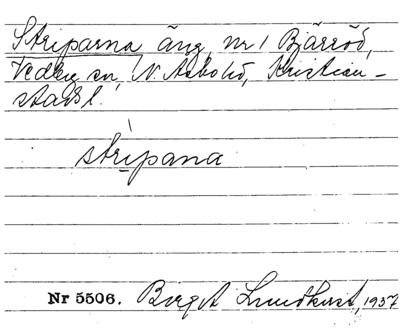 Striparna äng, nr 1 Bjärröd,
Vedby sn, N. Asbo hd, Kristian-
stads l.
stripana
Nr 5506. Birgit Lundkvist, 1937